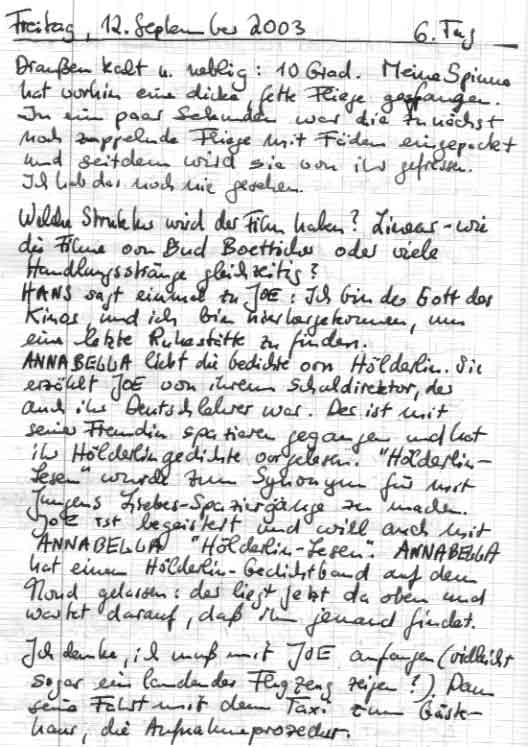 Freitag, 12. September 2003 6. Tag
Draußen kalt u. neblig: 10 Grad. Meine Spinne
hat vorhin eine dicke, fette Fliege gefangen.
In ein paar Sekunden war die zunächst
noch zappelnde Fliege mit Fäden eingepackt
und seitdem wird sie von ihr gefressen.
Ich hab das noch nie gesehen.
Welche Struktur wird der Film haben? Linear - wie
die Filme von Bud Boetticher oder viele
Handlungsstränge gleichzeitig?
HANS sagt einmal zu JOE: Ich bin der Gott des
Kinos und ich bin hierhergekommen, um
eine letzte Ruhestätte zu finden.
ANNABELLA liebt die Gedichte von Hölderlin. Sie
erzählt JOE von ihrem Schuldirektor, der
auch ihr Deutschlehrer war. Der ist mit
seiner Freundin spazieren gegangen und hat
ihr Hölderlingedichte vorgelesen. "Hölderlin-
Lesen" wurde zum Synonym für mit
Jungens Liebes-Spaziergänge zu machen.
JOE ist begeistert und will auch mit
ANNABELLA "Hölderlin-Lesen". ANNABELLA
hat einen Hölderlin-Gedichtband auf dem
Mond gelassen: der liegt jetzt da oben und
wartet darauf, daß ihn jemand findet.
Ich denke, ich muß mit JOE anfangen (vielleicht
sogar ein landendes Flugzeug zeigen?). Dann
seine Fahrt mit dem Taxi zum Gäste-
haus, die Aufnahmeprozedur.